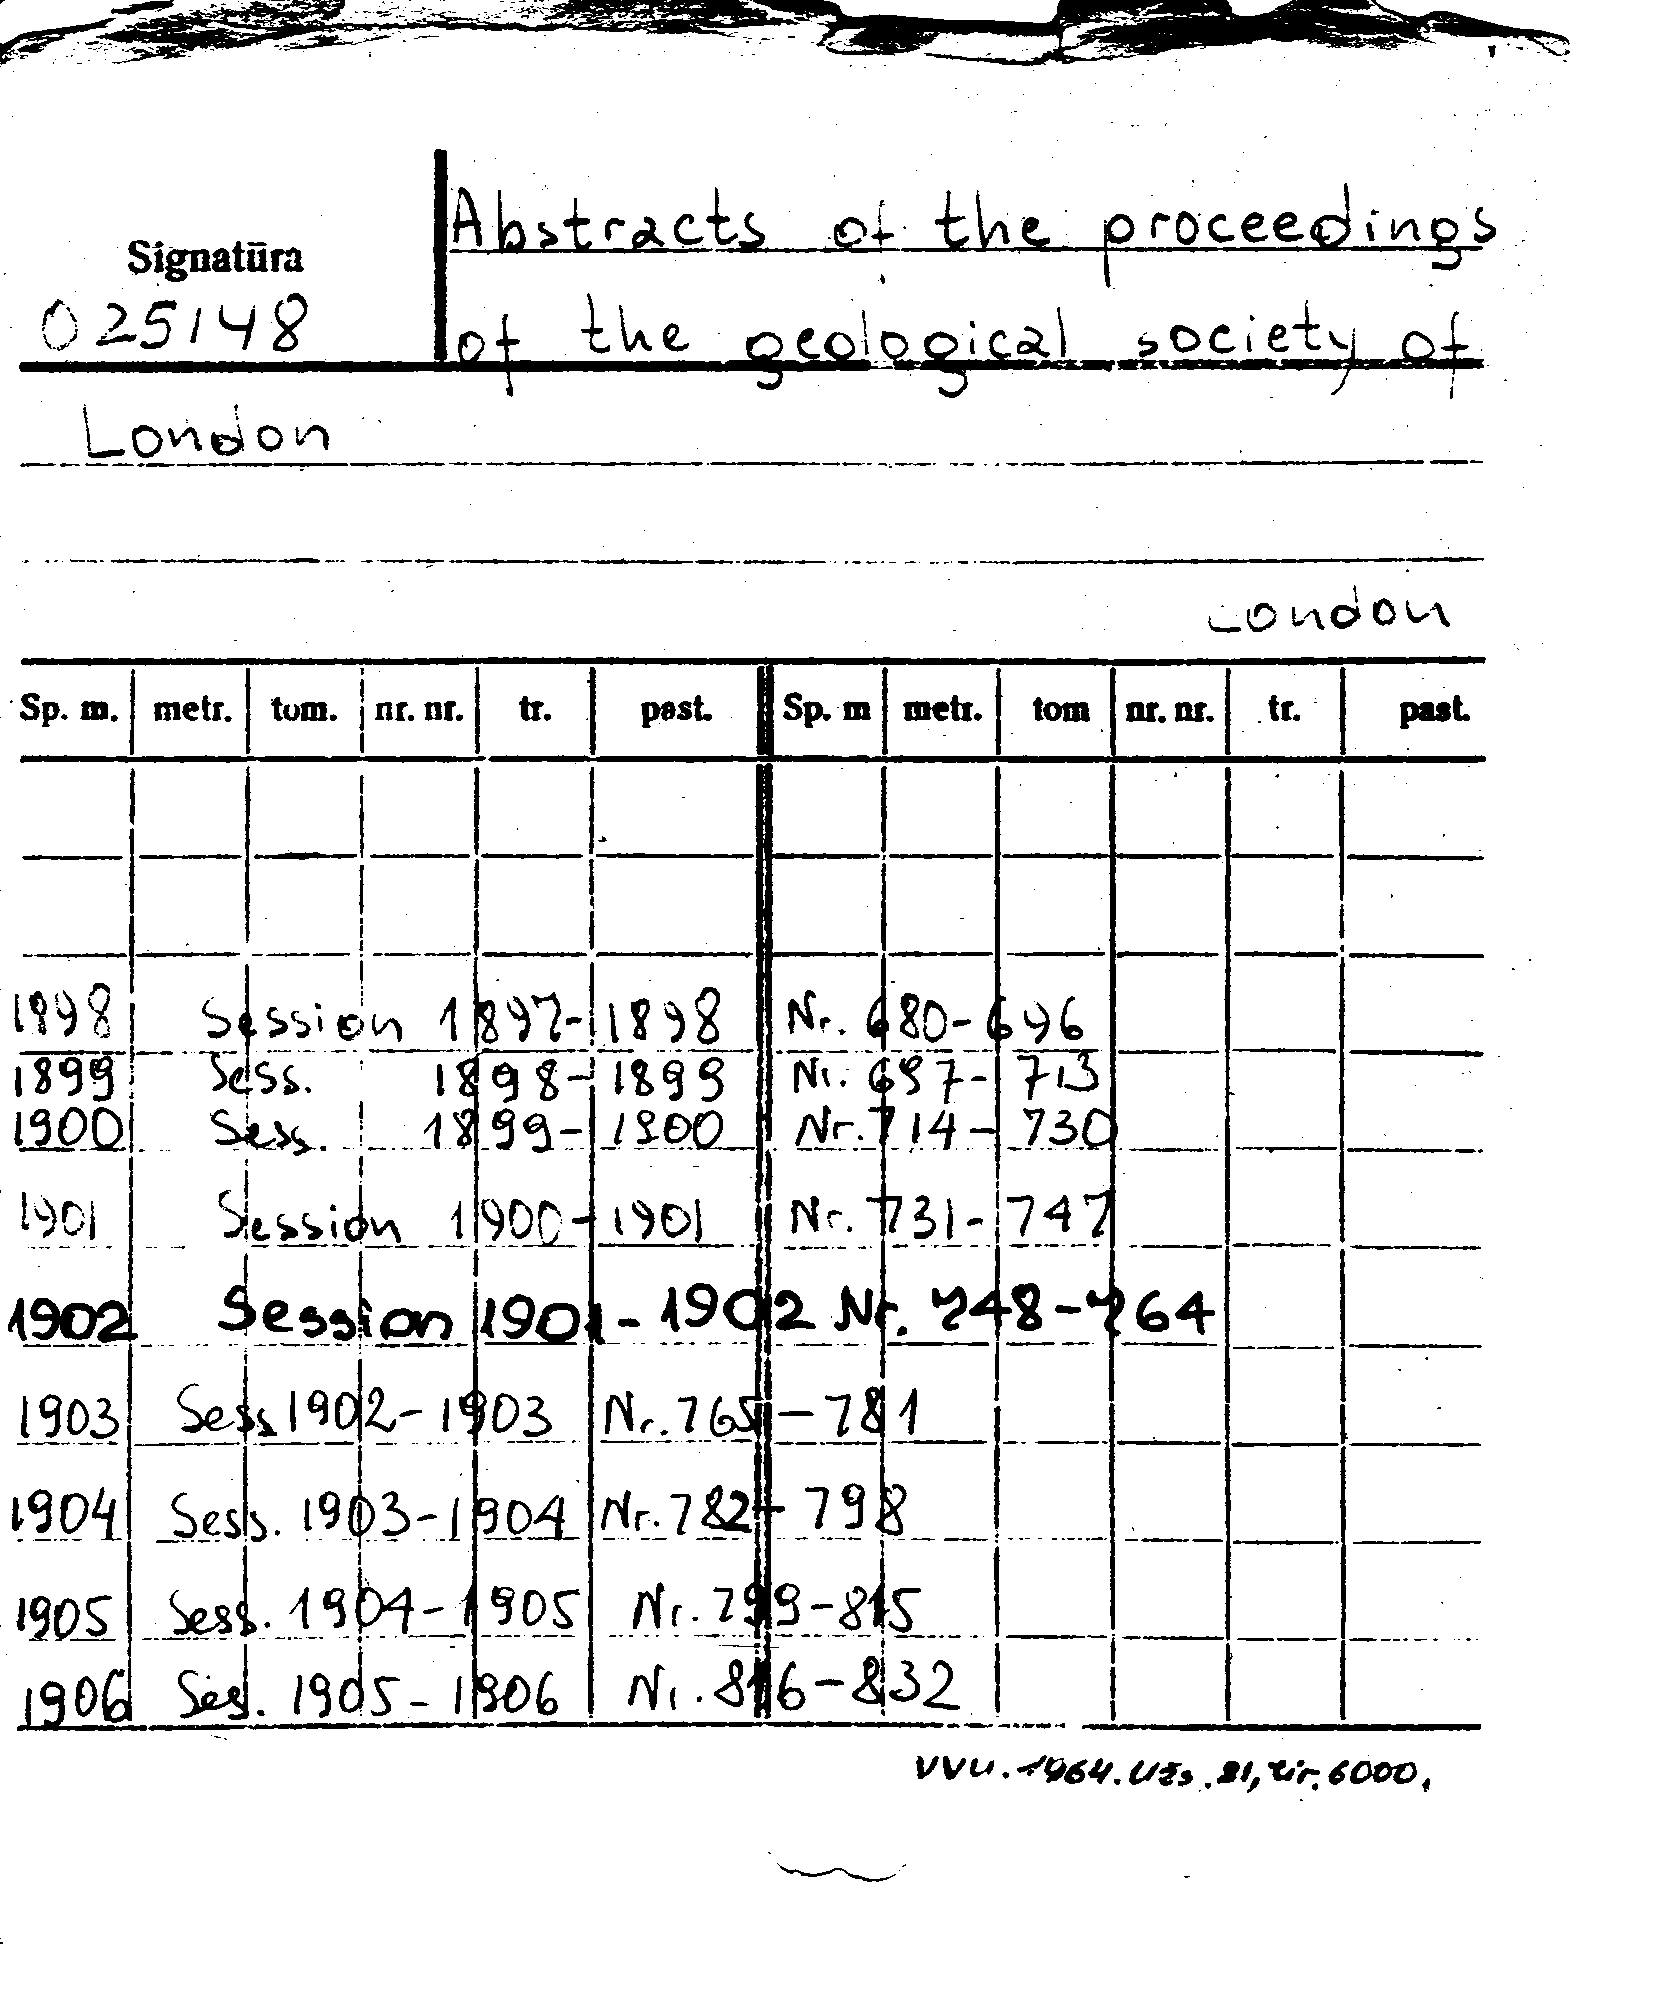 Abstracts of the proceedings
Signatūra
025148
of the geological society of
London
London
Sp. m. metr. tom. nr. nr. tr. past. Sp. m metr. tom nr. nr. tr. past.
1898 Session 1897-1898 Nr. 680-696
1899 Sess. 1898-1899 Nr. 697-713
1900 Sess. 1899-1900 Nr. 714-730
1901 Session 1900-1901 Nr. 731-747
1902 Session 1901-1902 Nr. 748-764
1903 Sess 1902-1903 Nr. 765-781
1904 Sess. 1903-1904 Nr. 782-798
1905 Sess. 1904-1905 Nr. 799-815
1906 Sess. 1905-1906 Nr. 816-832
VVU. 1964. Užs. 21, tir. 6000.